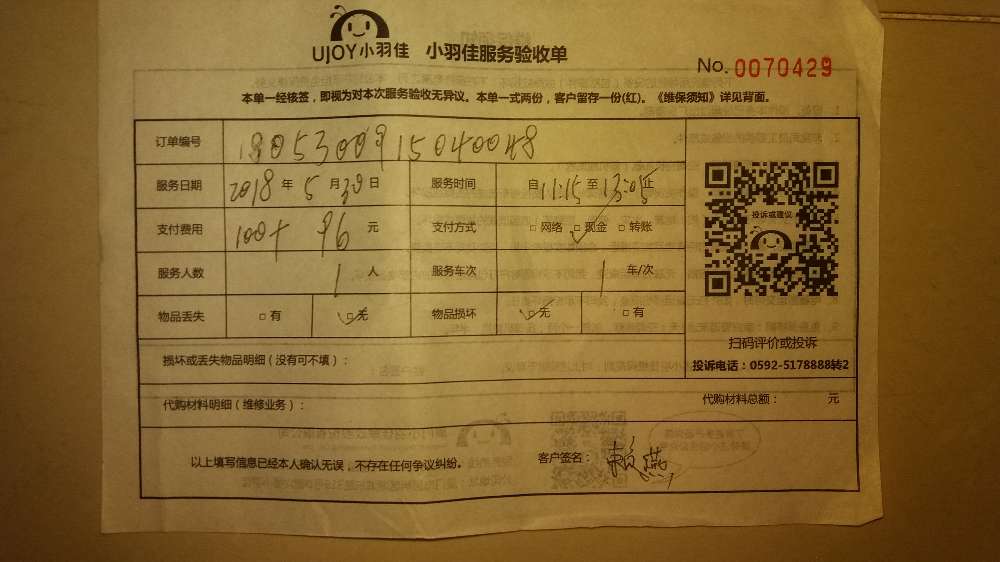 UJOY小羽佳 小羽佳服务验收单
No. 0070429
本单一经核签，即视为对本次服务验收无异议。本单一式两份，客户留存一份(红)。《维保须知》详见背面。
订单编号 1805300915040048
服务日期 2018 年 5 月 30 日 服务时间 自 11:15 至 13:05 止
支付费用 100+96 元 支付方式 □网络 □现金 □转账
服务人数 1 人 服务车次 1 车/次
物品丢失 □有 □无 物品损坏 □无 □有
投诉或建议
扫码评价或投诉
投诉电话：0592-5178888转2
损坏或丢失物品明细（没有可不填）：
代购材料明细（维修业务）： 代购材料总额： 元
以上填写信息已经本人确认无误，不存在任何争议纠纷。 客户签名： 赖燕